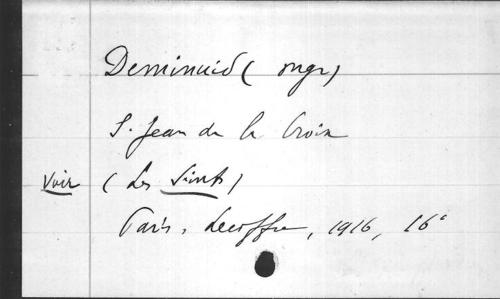 Demimuid ( mgr)
S. Jean de la Croix
Voir ( Les Saints)
Paris, Lecoffre, 1916, 16°